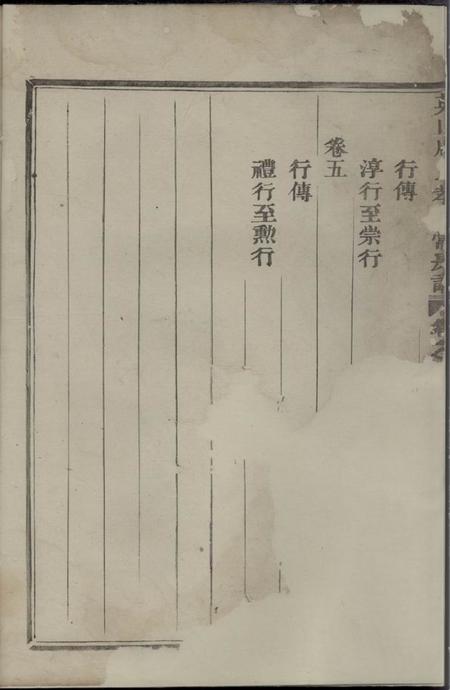 行傳
淳行至崇行
卷五
行傳
禮行至勲行